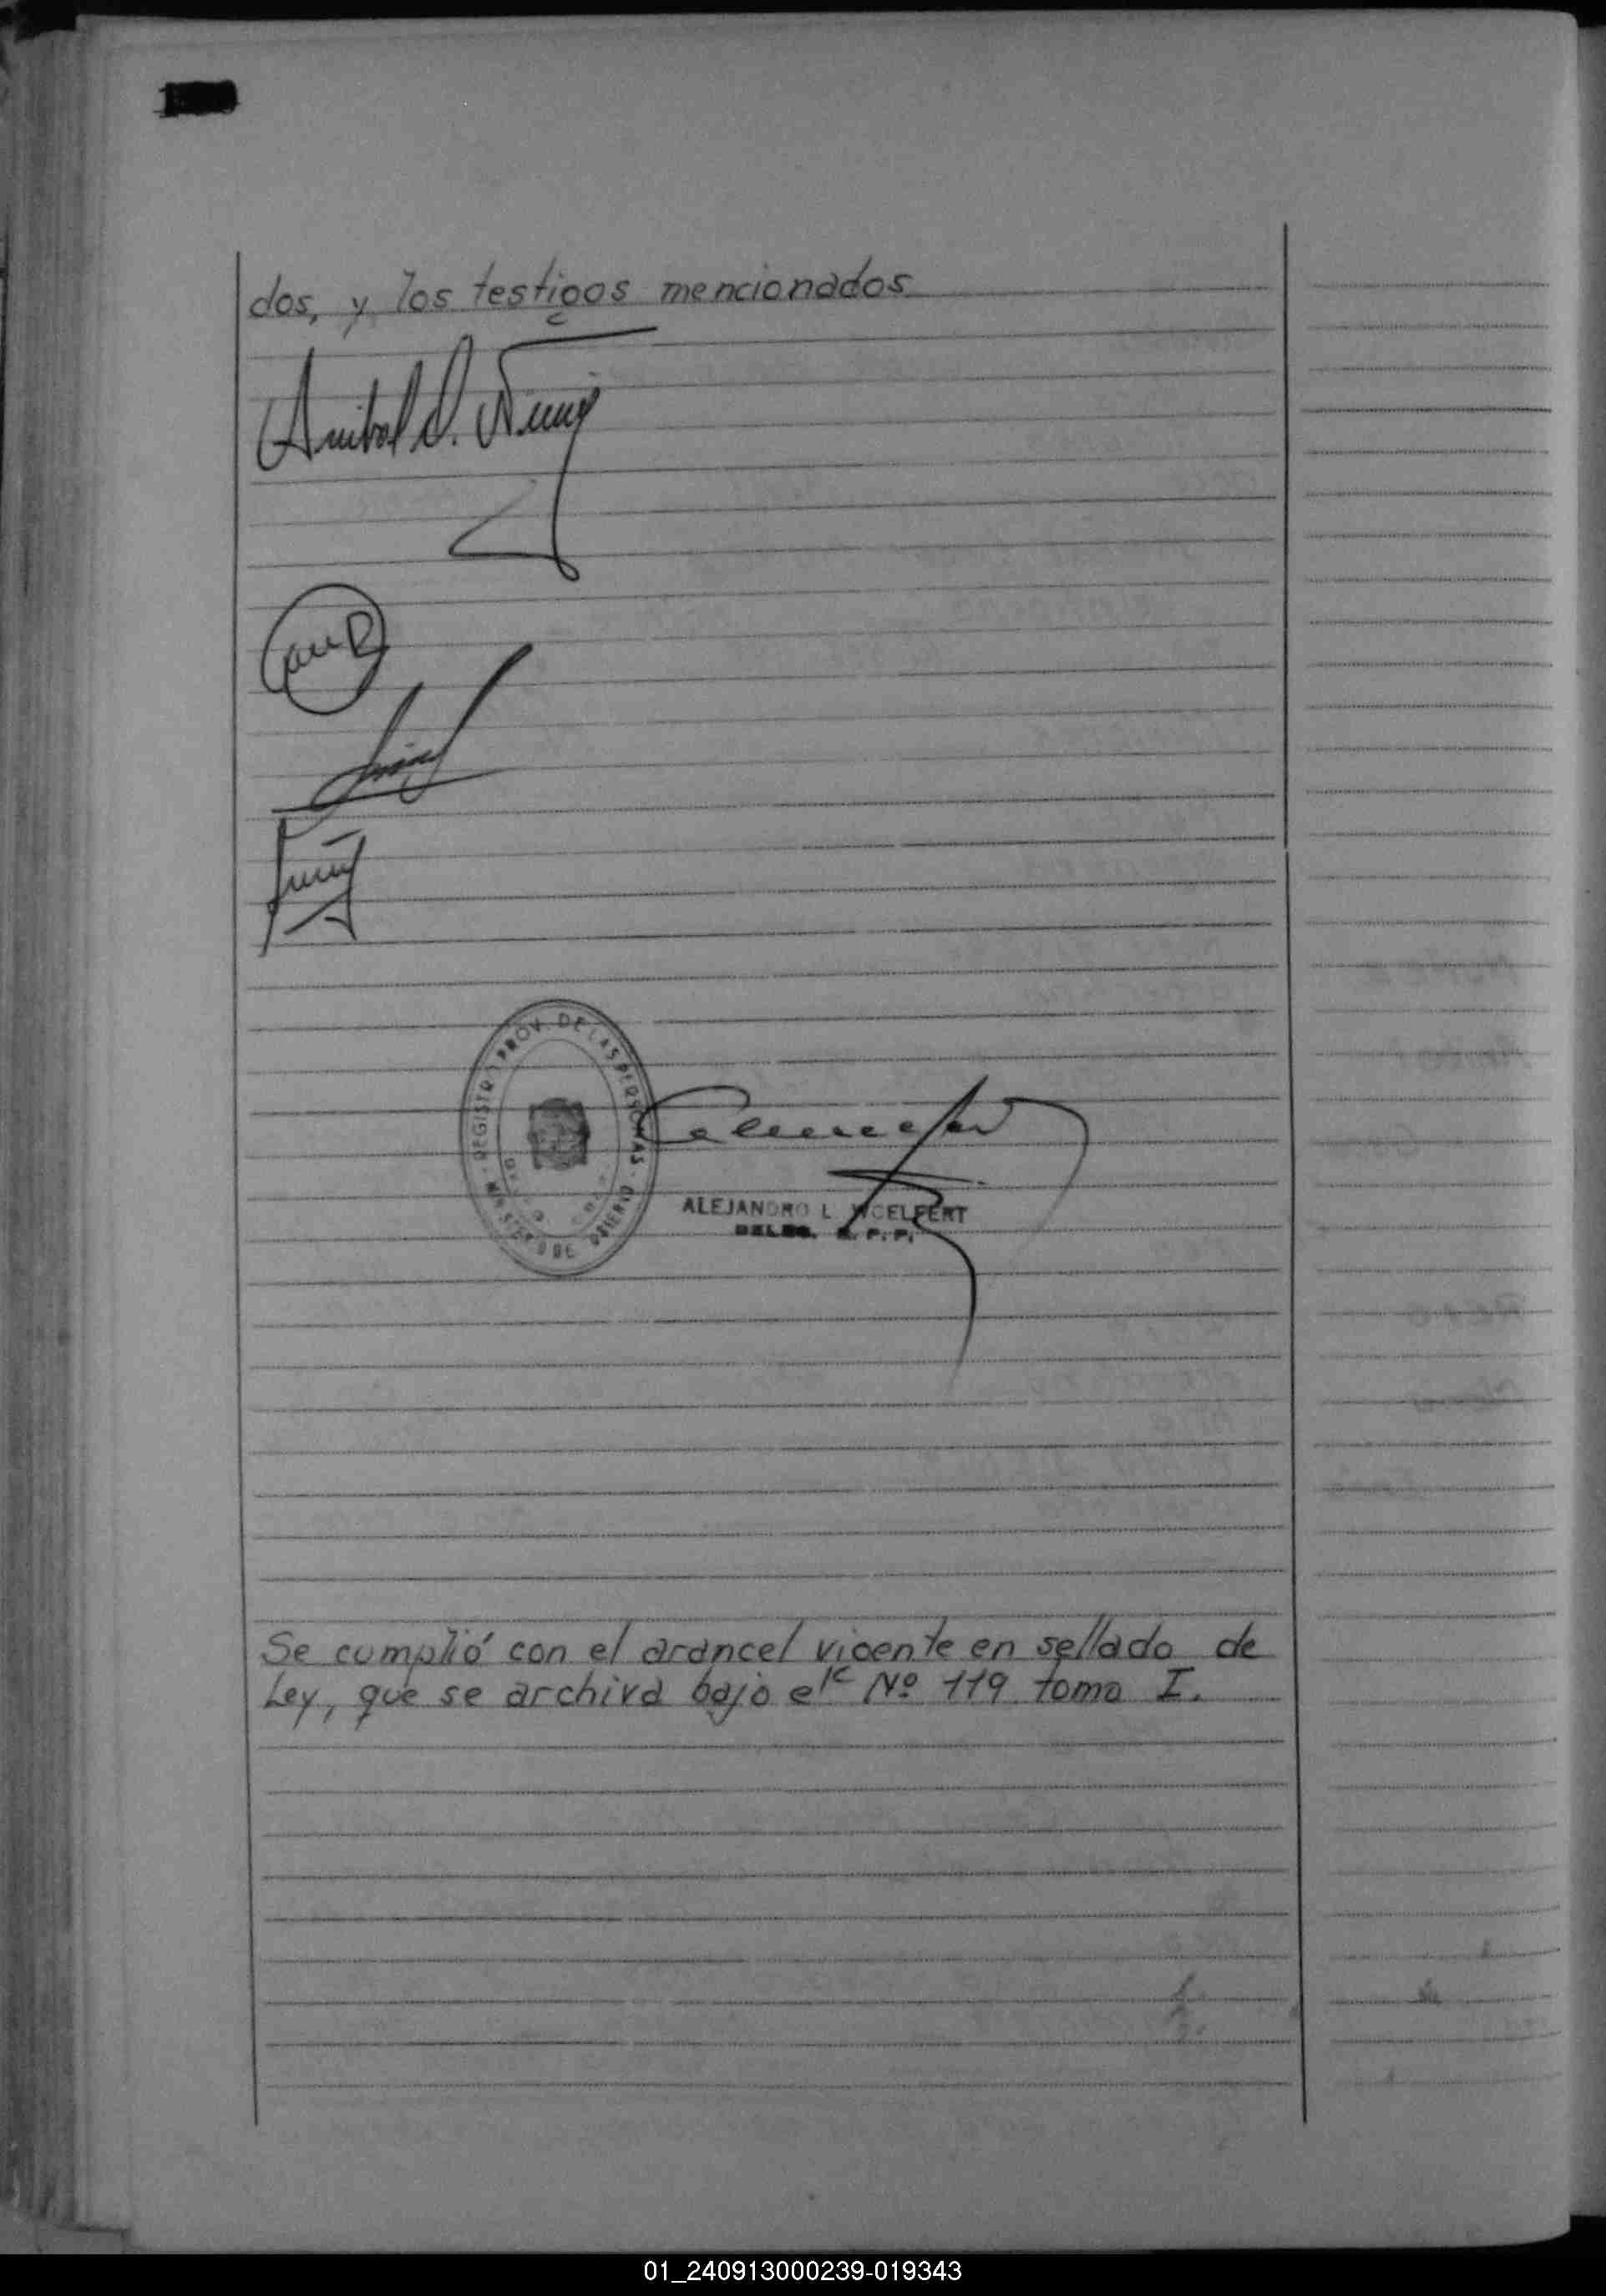 dos, y los testigos mencionados
Anibal
REGISTRO PROV. DE LAS PERSONAS
MINISTERIO DE GOBIERNO
ALEJANDRO L. WOELFERT
DELEG. R. P. P.
Se cumplió con el arancel vigente en sellado de
Ley, que se archiva bajo el Nº 119 tomo I.
01_240913000239-019343